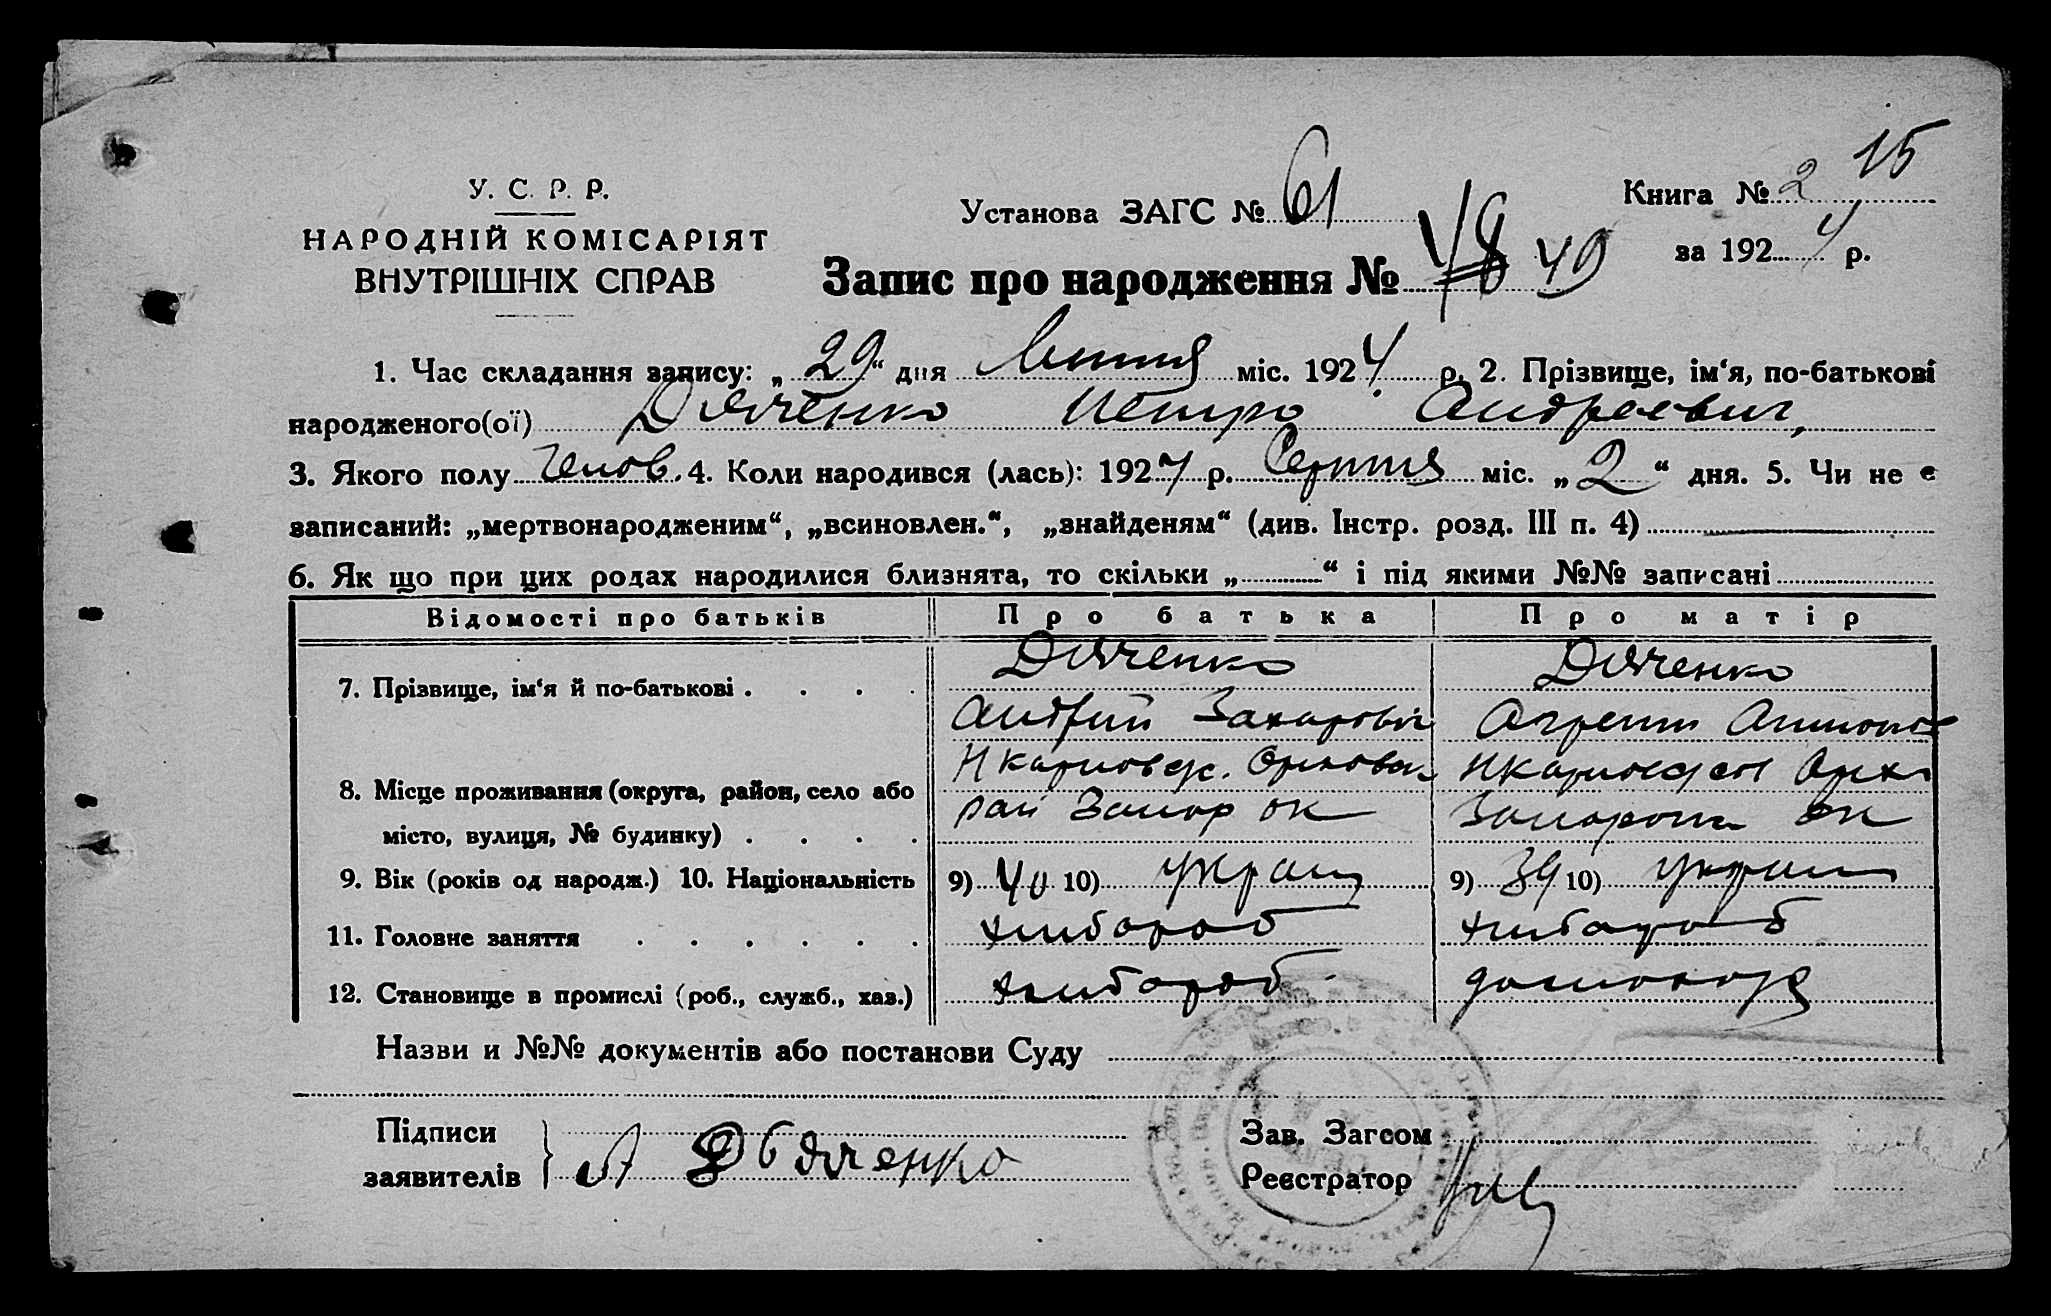 15
У. С. Р. Р.
НАРОДНІЙ КОМІСАРІЯТ
ВНУТРІШНІХ СПРАВ
Установа ЗАГС № 61
Книга № 2
за 1924 р.
Запис про народження № 48 49
1. Час складання запису: „29“ дня міс. 1924 р. 2. Прізвище, ім‘я, по-батькові
народженого(ої) Дяченко Петро Андреевич,
3. Якого полу чолов. 4. Коли народився (лась): 192 р. Серпня міс. „2“ дня. 5. Чи не є
записаний: „мертвонародженим“, „всиновлен.“, „знайденям“ (див. Інстр. розд. III п. 4)
6. Як що при цих родах народилися близнята, то скільки „ “ і під якими №№ записані
Відомості про батьків Про батька Про матір
7. Прізвище, ім‘я й по-батькові . . . . Дяченко Дяченко
Андрій Захарович
8. Місце проживання (округа, район, село або
місто, вулиця, № будинку) . . . . рай Запор ок ок
9. Вік (років од народж.) 10. Національність 9) 40 10) україн 9) 39 10) україн
11. Головне заняття . . . . . . хлібороб хлібороб
12. Становище в промислі (роб., служб., хаз.) хлібороб
Назви и №№ документів або постанови Суду
Підписи
заявителів } А Дбяченко
Зав. Загсом
Реєстратор